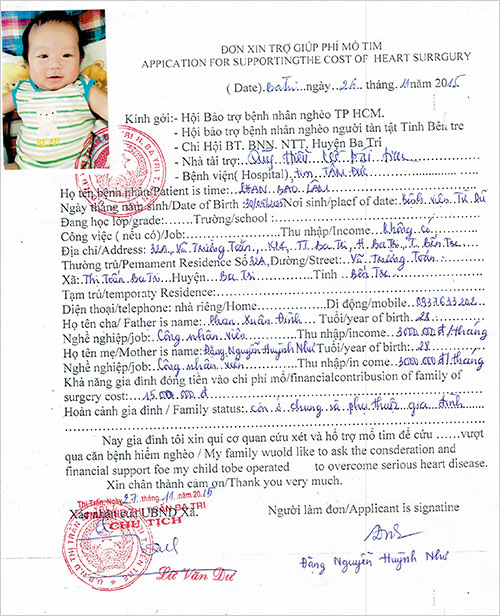 ĐƠN XIN TRỢ GIÚP PHÍ MỔ TIM
APPICATION FOR SUPPORTINGTHE COST OF HEART SURRGURY
( Date).Ba Tri..ngày..26...tháng.11năm 2015
Kính gởi:- Hội Bảo trợ bệnh nhân nghèo TP HCM.
- Hội bảo trợ bệnh nhân nghèo người tàn tật Tỉnh Bến tre
- Chi Hội BT. BNN. NTT. Huyện Ba Tri
- Nhà tài trợ:
- Bệnh viện( Hospital).tim TÂM ĐỨC
Họ tên bệnh nhân/Patient is time: PHAN BẢO LÂM
Ngày tháng năm sinh/Date of Birth 30/05/2015 Nơi sinh/placf of date: Bệnh viện Từ Dũ
Đang học lớp/grade:.......Trường/school :
Công việc ( nếu có)/Job:............Thu nhập/Income...Không có
Địa chỉ/Address: 32A, Vĩ Trường Toản, TT. Ba Tri, H. Ba Tri, T. Bến Tre
Thường trú/Pemament Residence Số 32A, Đường/Street: Trường Toản
Xã: Thị Trấn Ba Tri Huyện Ba Tri Tỉnh Bến Tre
Tạm trú/temporaty Residence:
Điện thoại/telephone: nhà riêng/Home..........Di động/mobile..0937633202
Họ tên cha/ Father is name: Phan Xuân Đỉnh Tuổi/year of birth. 28
Nghề nghiệp/job: Công nhân viên Thu nhập/income: 3000.000 đ/tháng
Họ tên mẹ/Mother is name: Đặng Nguyễn Huỳnh Như Tuổi/year of birth: 28
Nghề nghiệp/job: Công nhân viên Thu nhập/in come 3000.000 đ/tháng
Khả năng gia đình đóng tiền vào chi phí mổ/financialcontribusion of family of
surgery cost: 15.000.000 đ
Hoàn cảnh gia đình / Family status: còn ở chung và phụ thuộc gia đình
Nay gia đình tôi xin quí cơ quan cứu xét và hổ trợ mổ tim để cứu ......vượt
qua căn bệnh hiểm nghèo / My family wuold like to ask the consderation and
financial support foe my child tobe operated to overcome serious heart disease.
Xin chân thành cảm ơn/Thank you very much.
Thị Trấn, Ngày 27. tháng. 11 năm 2015
Xác nhận của UBND Xã. Người làm đơn/Applicant is signatine
CHỦ TỊCH
Lữ Văn Dư
Đặng Nguyễn Huỳnh Như